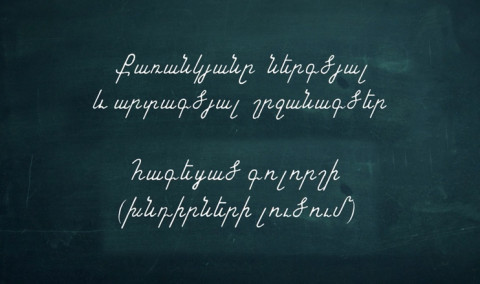 Քառանկյանը ներգծյալ
և արտագծյալ շրջանագծեր
Հագեցած գոլորշի
(խնդիրների լուծում)